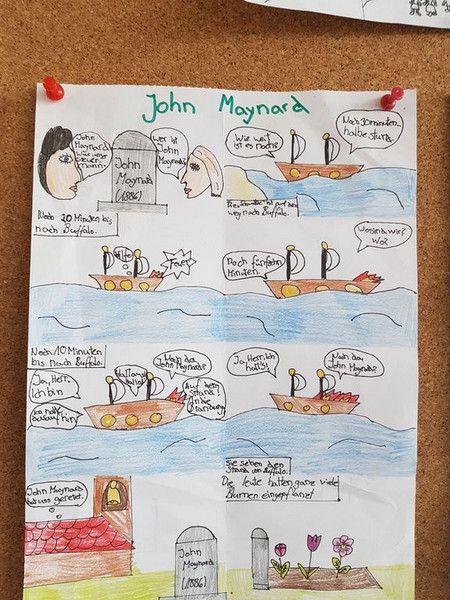 John Maynard
John
Maynard
war unser
steuer-
mann.
wer ist
John
Maynard?
John
Maynard
(1886)
Wie weit
ist es noch?
Noch 30 minuten
halbe stund.
weg nach Buffalo.
Noch 20 Minuten bis
nach Buffalo.
Hilfe
Feuer
Noch fünfzehn
Minuten.
Wo sind wir?
Wo?
Noch 10 Minuten
bis nach Buffalo.
Ja, Herr.
Ich bin
Noch da
John Maynard?
Auf den
Strand!
In die
Brandung
Ja, Herr. Ich
halt's!
Noch da
John Maynard?
Sie sehen den
Strand von Buffalo.
John Maynard
hat uns gerettet.
Die leute hatten ganz viele
Blumen eingepflanzt
John
Maynard
(1886)